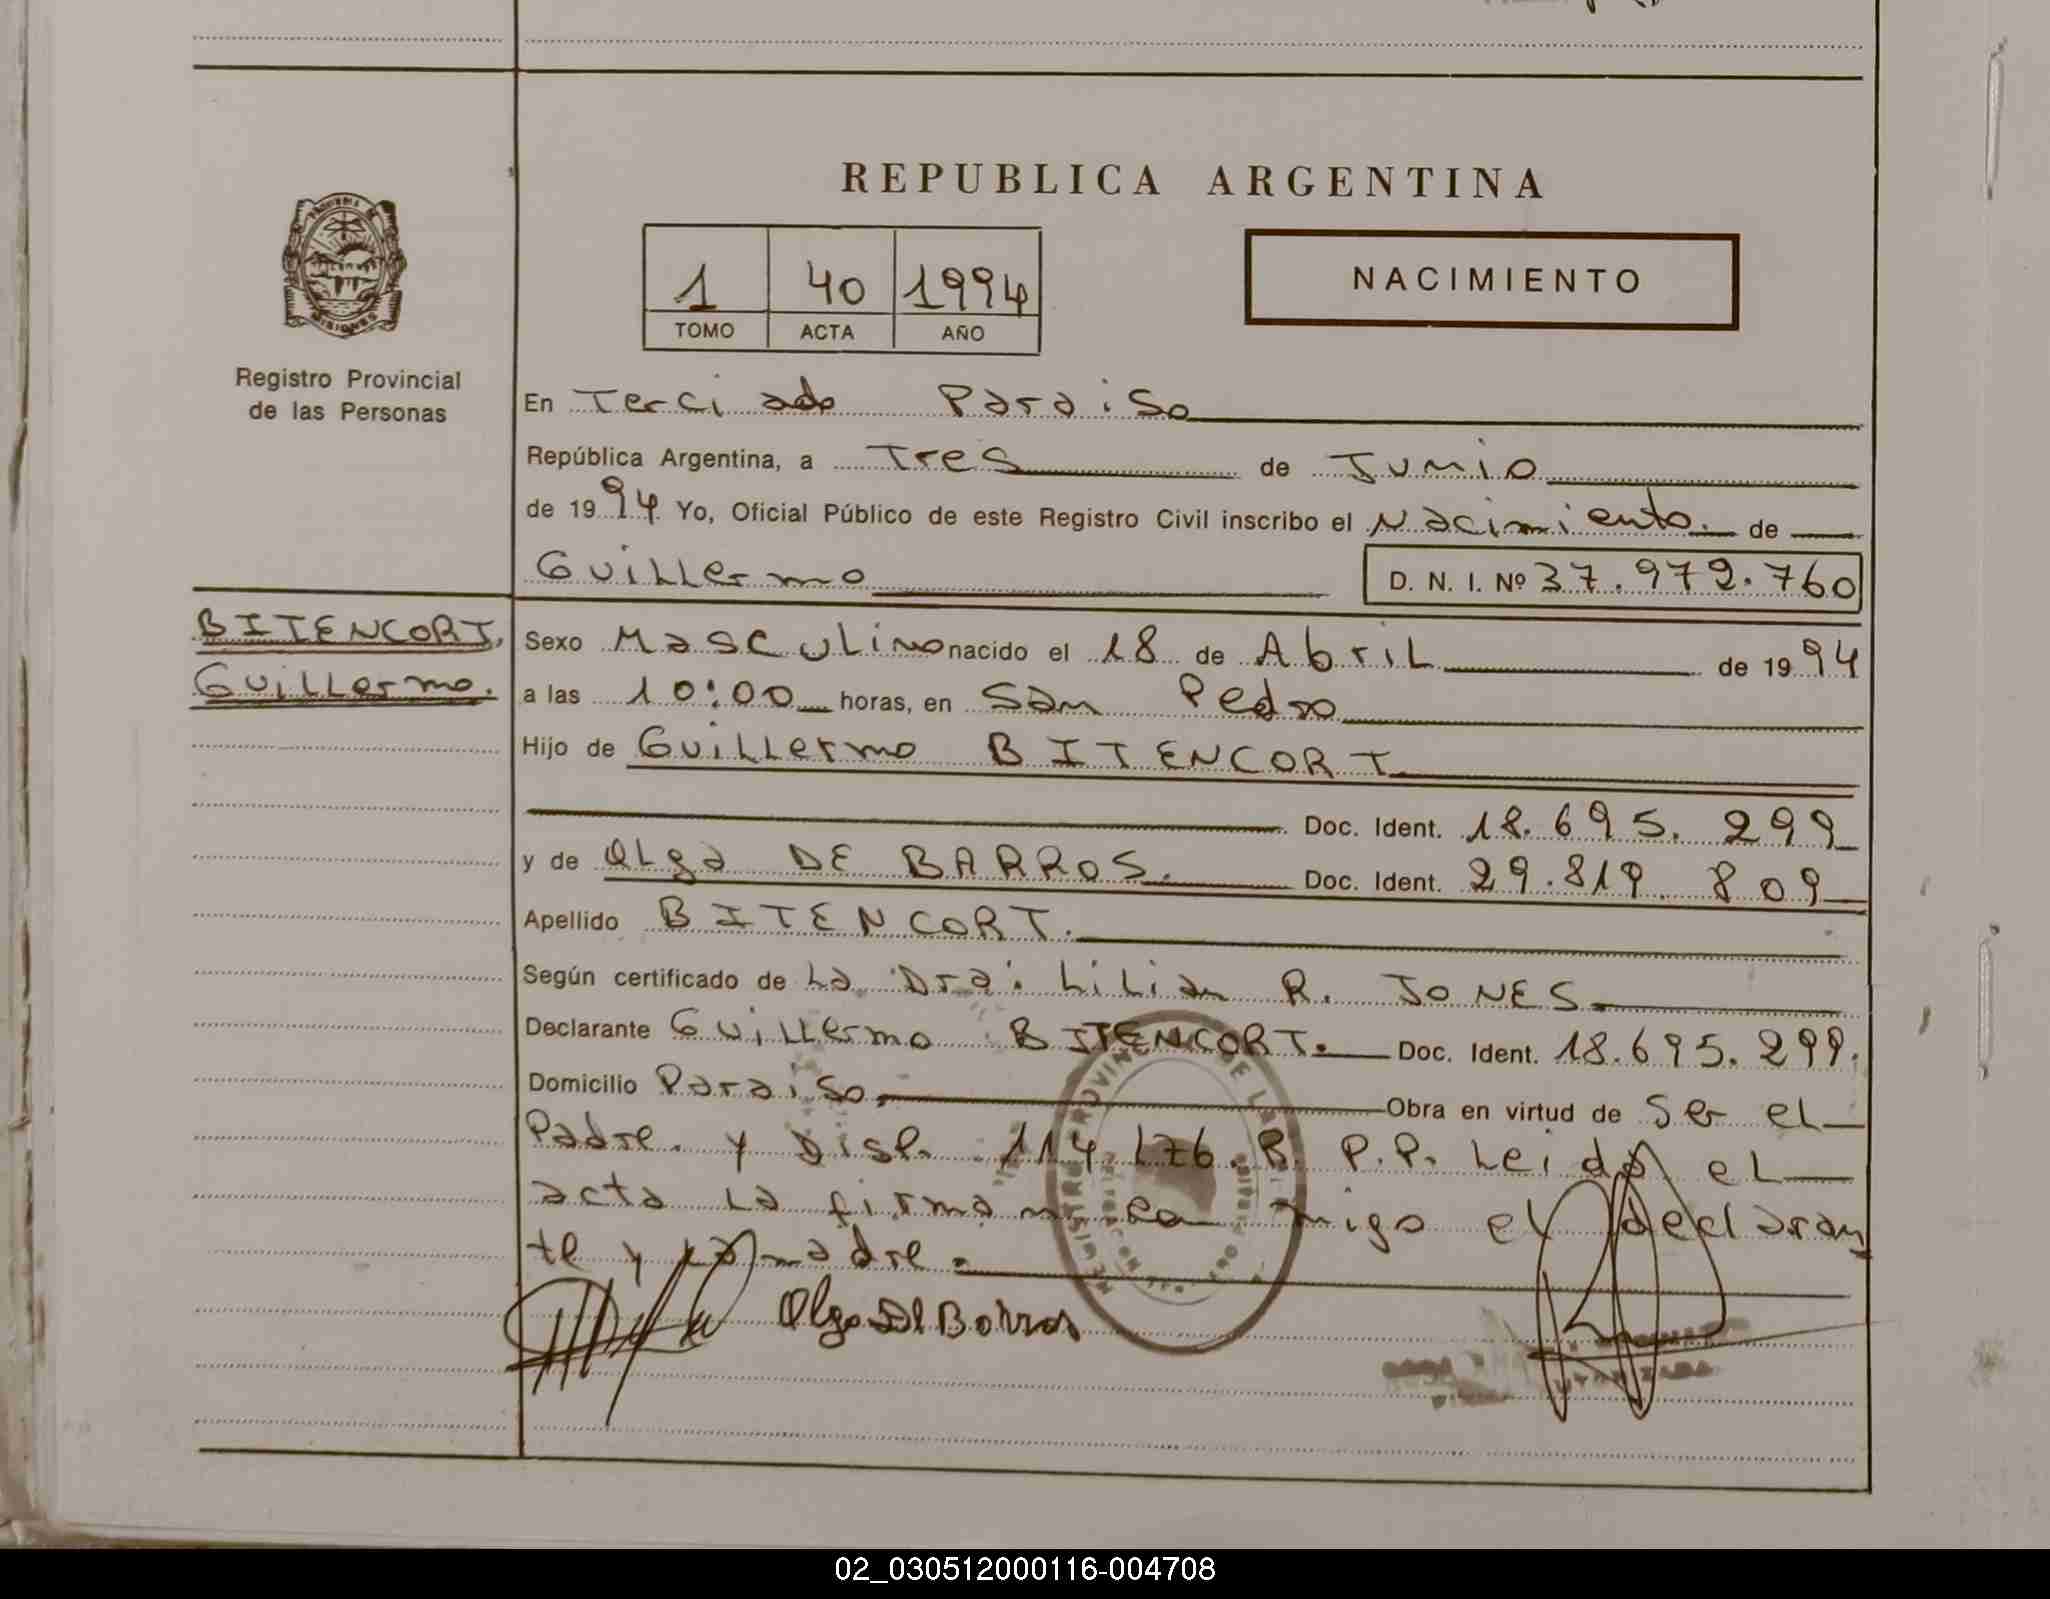 REPUBLICA ARGENTINA
1 40 1994
TOMO ACTA AÑO
NACIMIENTO
PROVINCIA DE MISIONES
Registro Provincial
de las Personas
En Terciado Paraiso
República Argentina, a Tres de Junio
de 1994 Yo, Oficial Público de este Registro Civil inscribo el Nacimiento. de
Guillermo D. N. I. Nº 37.972.760
BITENCORT,
Guillermo.
Sexo Masculino nacido el 18 de Abril de 1994
a las 10:00 horas, en San Pedro
Hijo de Guillermo BITENCORT
Doc. Ident. 18.695.299
y de Olga DE BARROS. Doc. Ident. 29.819 809
Apellido BITENCORT.
Según certificado de La Dra: Lilian R. JONES
Declarante Guillermo BITENCORT. Doc. Ident. 18.695.299.
Domicilio Paraiso. Obra en virtud de Ser el
Padre. y Disp. 114 176. B. P.P. Leido el
acta la firman con migo el declaran
te y la madre.
Olga De Barros
02_030512000116-004708